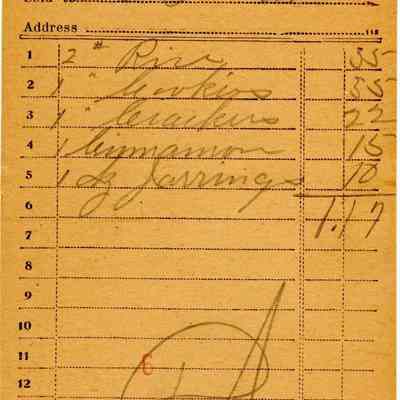 Address 118
1 2 # Rice 35
2 1 " Cookies 35
3 1 " Crackers 22
4 1 Cinnamon 15
5 1 Jarrings 10
6 1.17
7
8
9
10
11 6
12